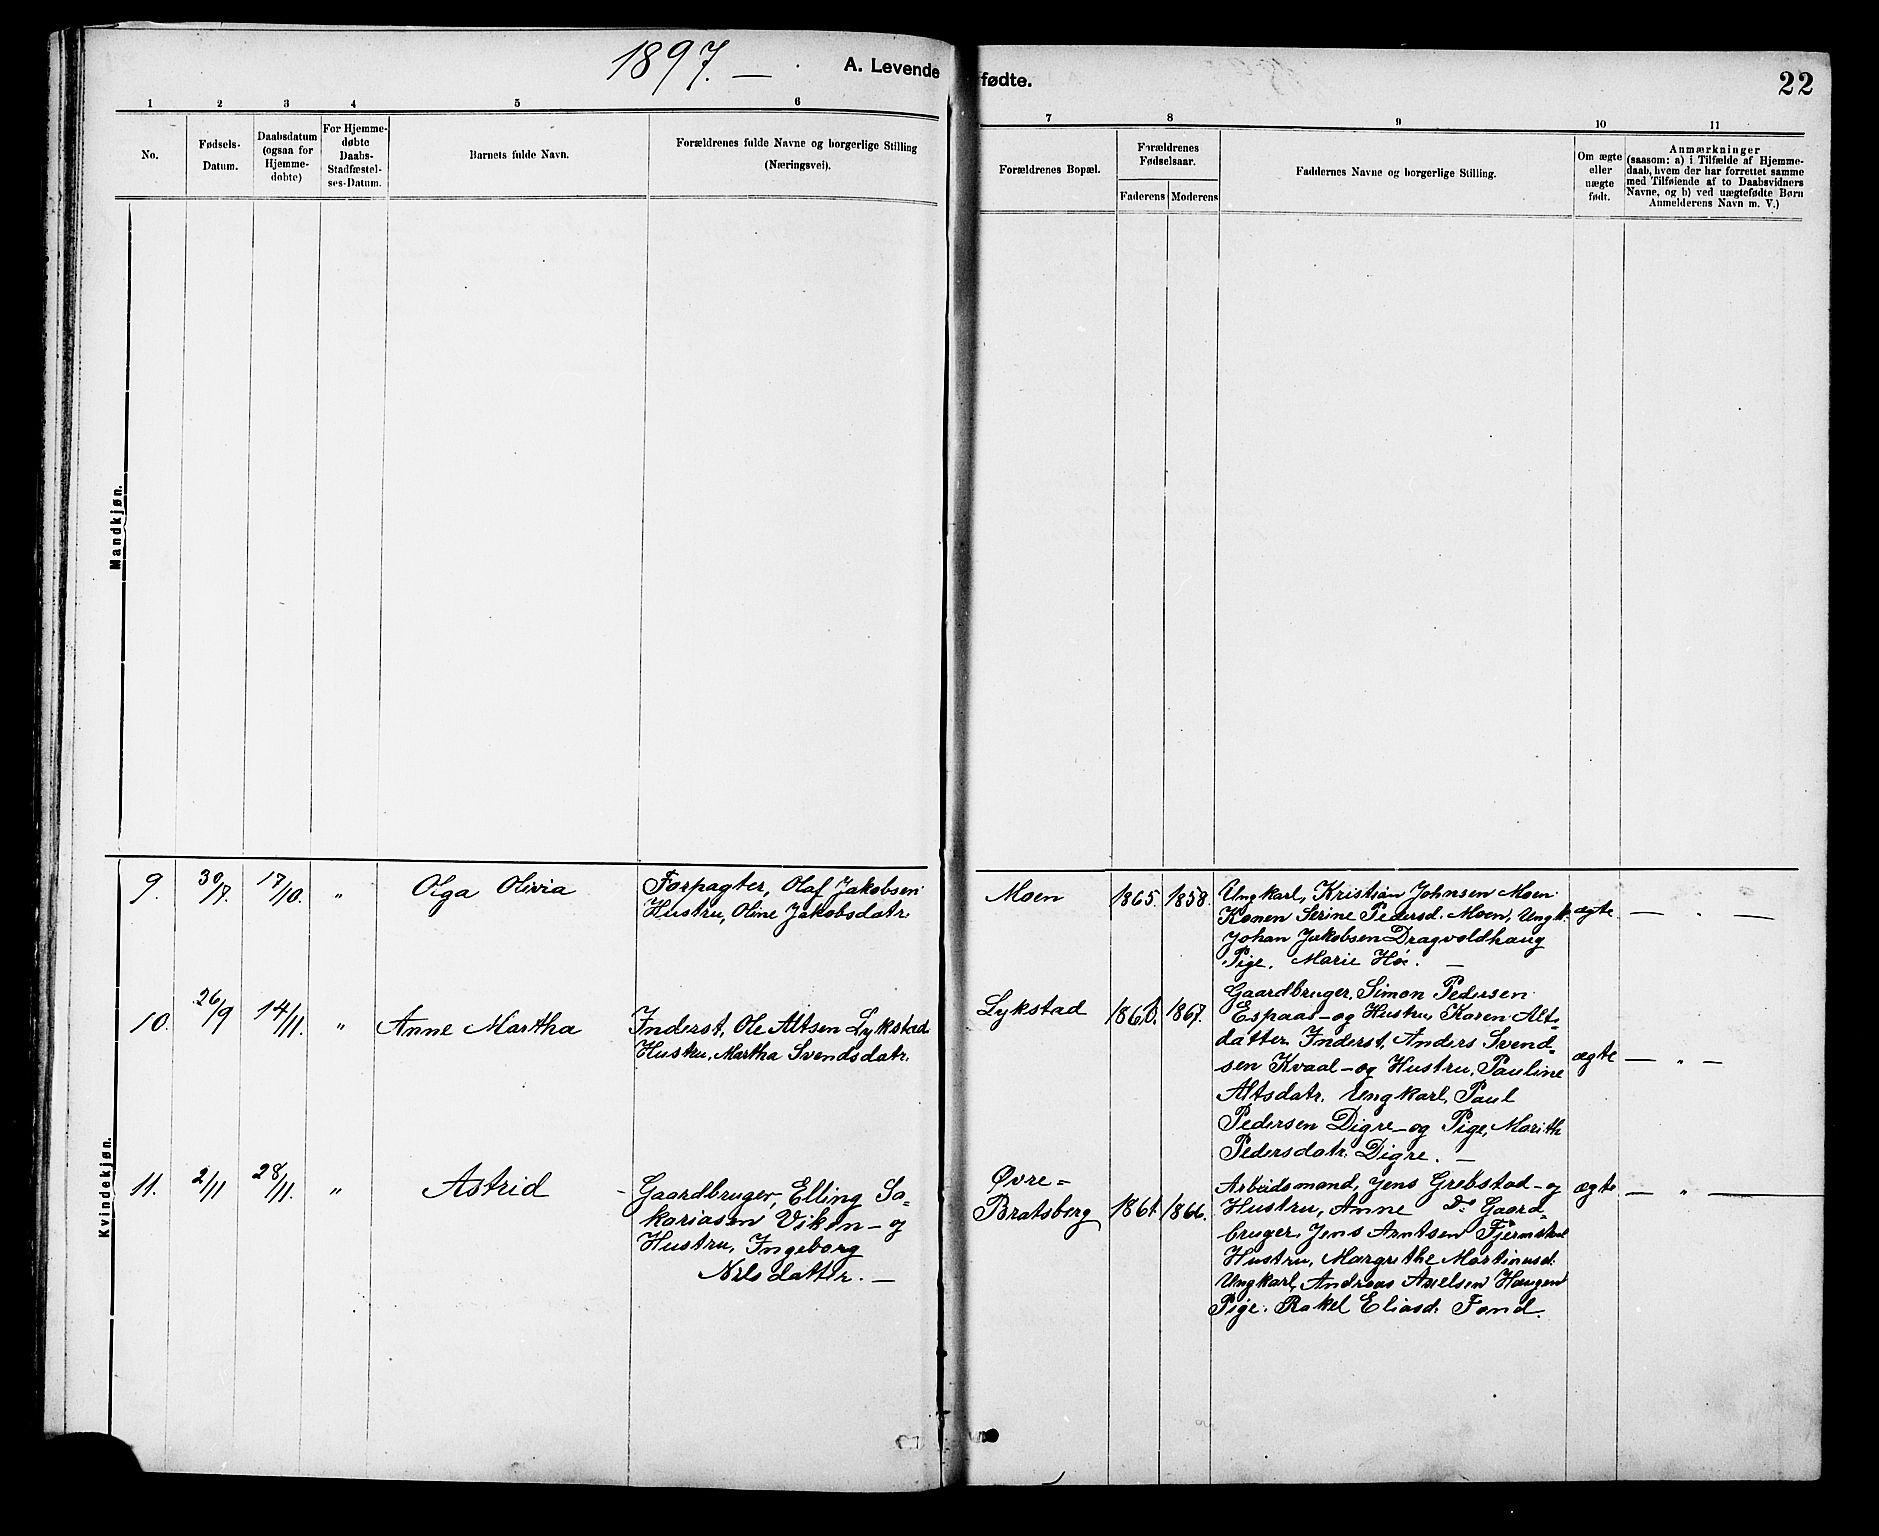 1897. —
A. Levende fødte.
22
1 2 3 4 5 6 7 8 9 10 11
No.
Fødsels-
Datum.
Daabsdatum
(ogsaa for
Hjemme-
døbte)
For Hjemme-
døbte
Daabs-
Stadfæstel-
ses-Datum.
Barnets fulde Navn.
Forældrenes fulde Navne og borgerlige Stilling
(Næringsvei).
Forældrenes Bopæl.
Forældrenes
Fødselsaar.
Faderens Moderens
Faddernes Navne og borgerlige Stilling.
Om ægte
eller
uægte
født.
Anmærkninger
(saasom: a) i Tilfælde af Hjemme-
daab, hvem der har forrettet samme
med Tilføiende af to Daabsvidners
Navne, og b) ved uægtefødte Børn
Anmelderens Navn m. V.)
Mandkjøn.
Kvindekjøn.
9.
30/7.
17/10.
"
Olga Olivia
Forpagter, Olaf Jakobsen
Hustru, Oline Jakobsdatr.
Moen
1865.
1858.
Ungkarl, Kristian Johnsen Moen
Konen Serine Pedersd. Moen, Ungk.
Johan Jakobsen Dragvoldhaug
Pige, Marie Hó. —
ægte
— " —
10.
26/9
14/11.
"
Anne Martha
Inderst, Ole Altsen Lykstad
Hustru, Martha Svendsdatr.
Lykstad
1867.
Gaardbruger, Simon Pedersen
Espaas — og Hustru Karen Alt-
datter. Inderst, Anders Svend-
sen Kvaal — og Hustru, Pauline
Altsdatr. Ungkarl, Paul
Pedersen Digre — og Pige, Marith
Pedersdatr. Digre. —
ægte
— " —
11.
2/11
28/11.
"
Astrid
Gaardbruger, Elling Sa-
kariasen Viken — og
Hustru, Ingeborg
Nilsdatter. —
Øvre =
Bratsberg
1861.
1866.
Arbeidsmand, Jens Grebstad — og
Hustru, Anne Do. Gaard-
bruger, Jens Arntsen Fjermstad
Hustru, Margrethe Martinusd.
Ungkarl, Andreas Axelsen Haugen
Pige. Rakel Eliasd. Fond.
ægte
— " —